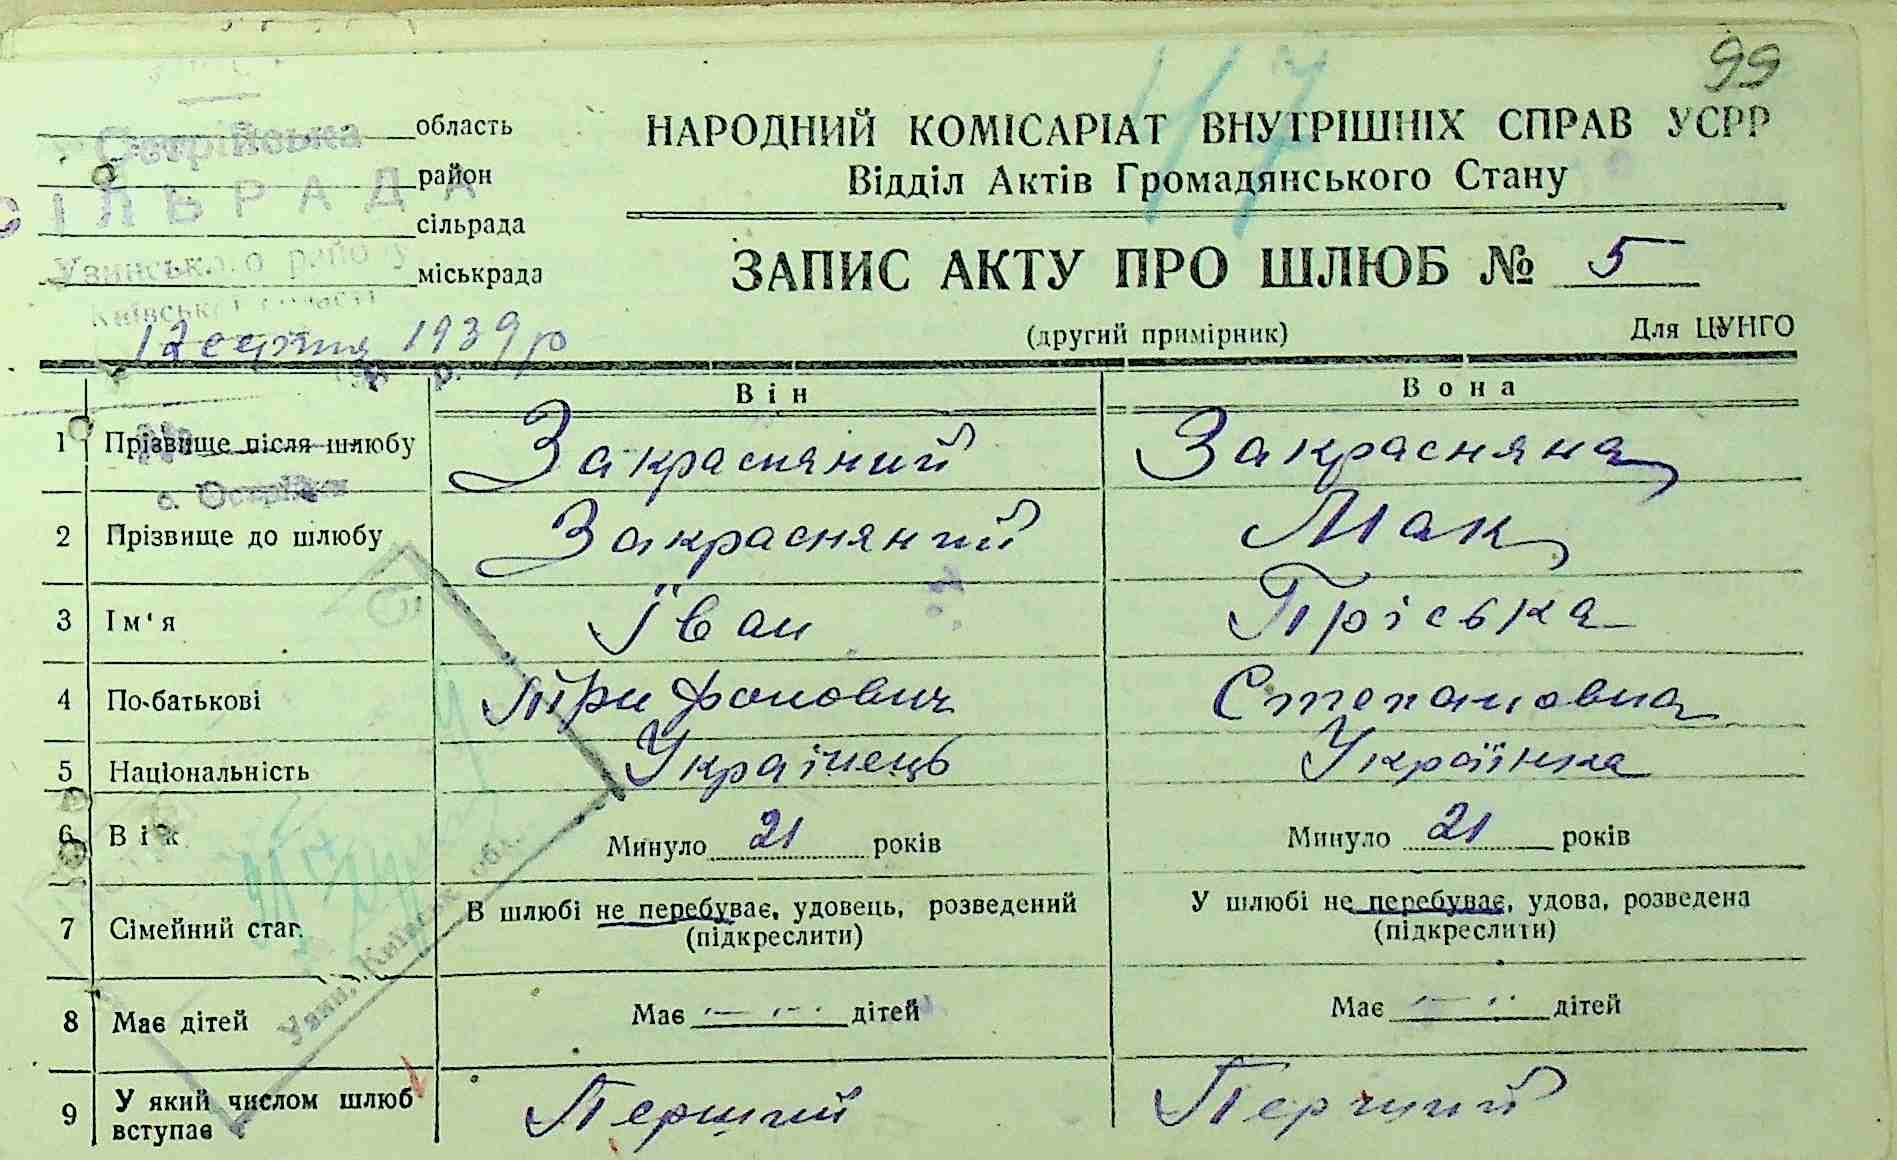 99
47
НАРОДНИЙ КОМІСАРІАТ ВНУТРІШНІХ СПРАВ УСРР
Відділ Актів Громадянського Стану
Острійська область
район
СІЛЬРАДА
сільрада
Узинського району міськрада
Київської області
ЗАПИС АКТУ ПРО ШЛЮБ № 5
12 серпня 1939 р
(другий примірник) Для ЦУНГО
Він Вона
1 Прізвище після шлюбу Закрасняний Закрасняна
с. Острійки
2 Прізвище до шлюбу Закрасняний Мак
3 Ім'я Іван Пріська
4 По-батькові Трифонович Степановна
5 Національність Українець Українка
6 Вік Минуло 21 років Минуло 21 років
7 Сімейний стаг. В шлюбі не перебуває, удовець, розведений У шлюбі не перебуває, удова, розведена
(підкреслити) (підкреслити)
Узин. Київськ. обл.
8 Має дітей Має — дітей Має — дітей
9 У який числом шлюб вступає Перший Перший